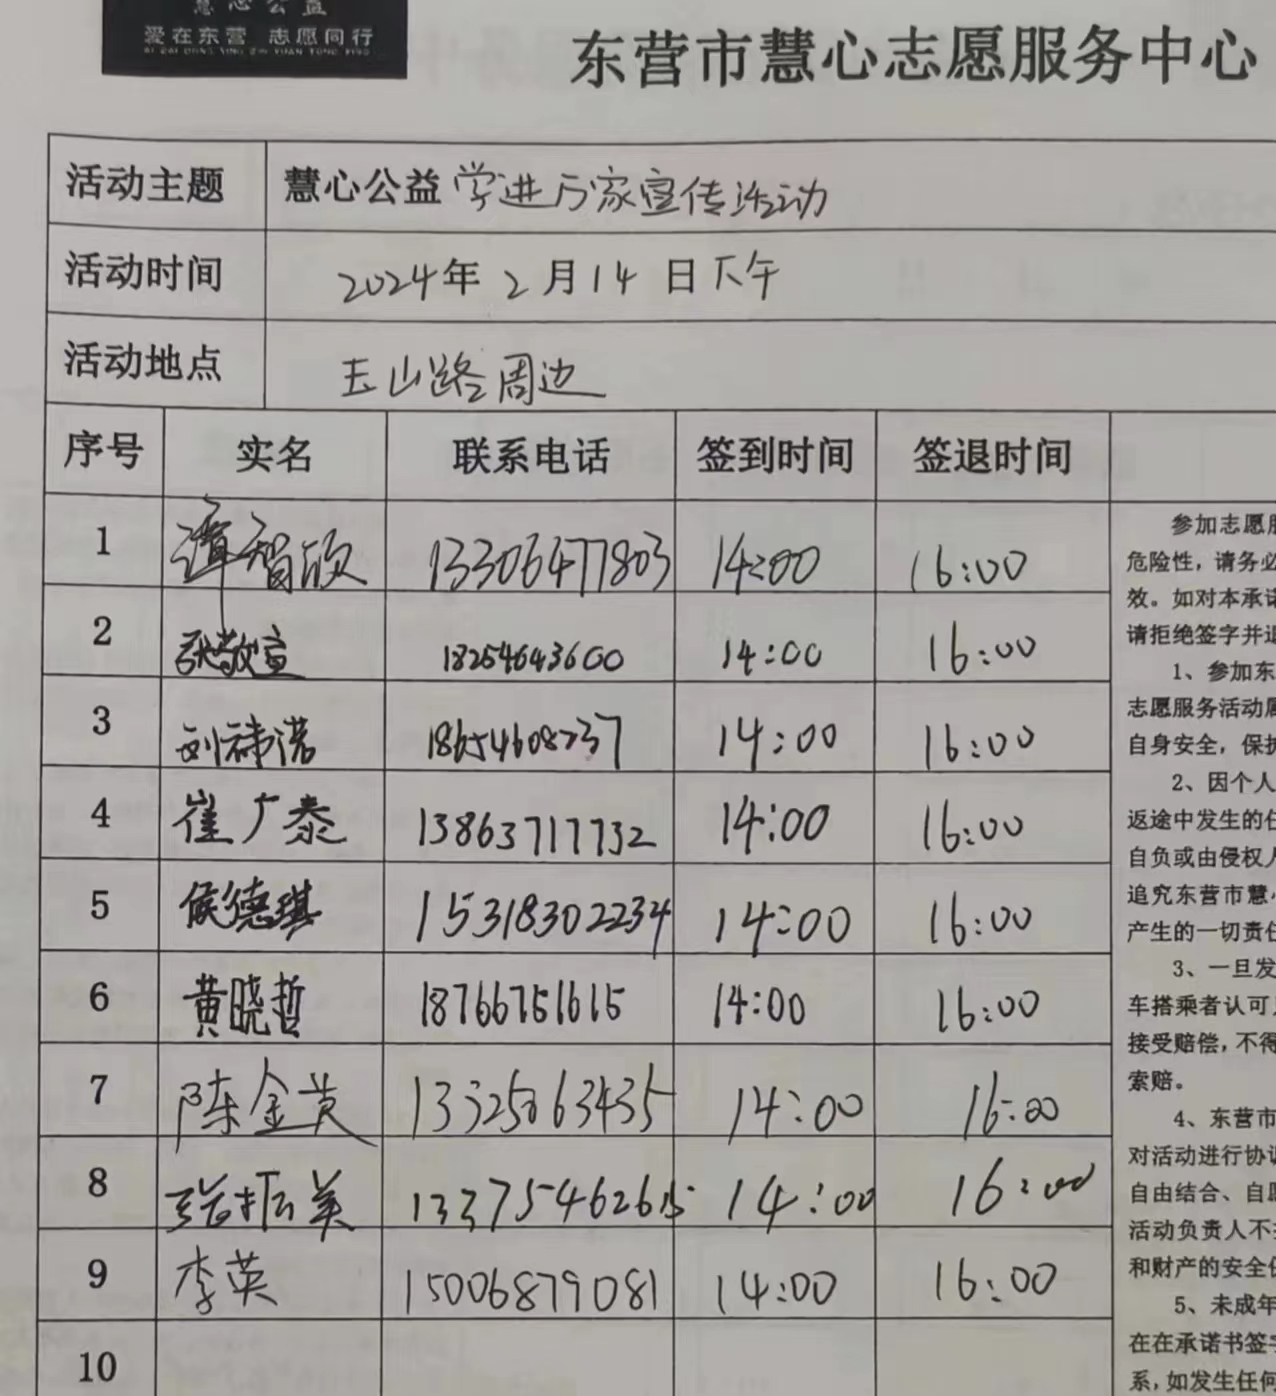 慧心公益
爱在东营 志愿同行
东营市慧心志愿服务中心
活动主题 慧心公益 学进万家宣传活动
活动时间 2024年 2月14日下午
活动地点 玉山路周边
序号 实名 联系电话 签到时间 签退时间
1 谭智欣 13306477803 14:00 16:00
2 张敬宣 18254643600 14:00 16:00
3 刘祎诺 18654608737 14:00 16:00
4 崔广泰 13863717732 14:00 16:00
5 侯德琪 15318302234 14:00 16:00
6 黄晓哲 18766751615 14:00 16:00
7 陈金英 13325063435 14:00 16:00
8 张振美 13375462615 14:00 16:00
9 李英 15006879081 14:00 16:00
10
参加志愿服
危险性，请务必
效。如对本承诺
请拒绝签字并退
1、参加东
志愿服务活动属
自身安全，保护
2、因个人
返途中发生的任
自负或由侵权人
追究东营市慧心
产生的一切责任
3、一旦发
车搭乘者认可
接受赔偿，不得
索赔。
4、东营市
对活动进行协调
自由结合、自愿
活动负责人不
和财产的安全
5、未成年
在在承诺书签字
系，如发生任何